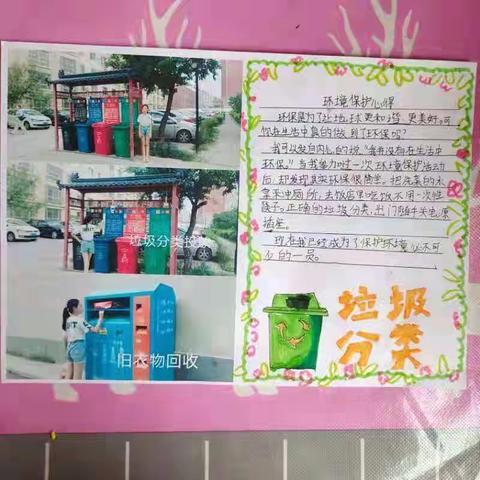 垃圾分类投
旧衣物回收
环境保护心得
环保是为了让地球更和谐,更美好。可
你在生活中真的做到了环保吗?
我可以发自内心的说,“我没有在生活中
环保。”当我参加过一次环境保护活动
后,却发现其实环保很简单。把洗菜的水
拿来冲厕所,去饭店里吃饭不用一次性
筷子。正确的垃圾分类,出门随手关电源
插座。
现在我已经成为了保护环境必不可
少的一员。
垃圾
分类